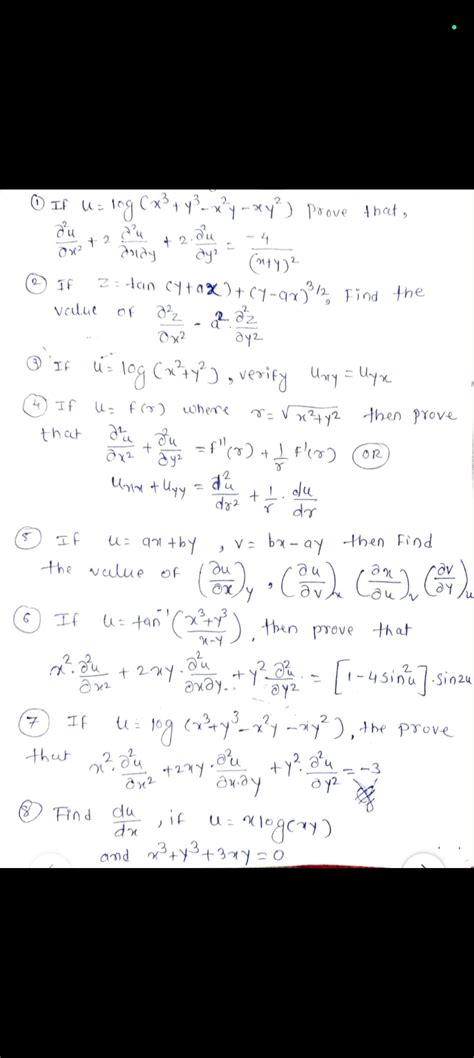 ① If u = log (x³ + y³ - x²y - xy²) prove that,
∂²u/∂x² + 2 ∂²u/∂x∂y + 2·∂²u/∂y² = -4/(x+y)²
② If z = tan (y+ax) + (y-ax)^3/2, Find the
value of ∂²z/∂x² - a²·∂²z/∂y²
③ If u = log (x²+y²), verify uxy = uyx
④ If u = f(r) where r = √x²+y² then prove
that ∂²u/∂x² + ∂²u/∂y² = f''(r) + 1/r f'(r) (OR)
uxx + uyy = d²u/dr² + 1/r · du/dr
⑤ If u = ax+by , v = bx-ay then Find
the value of (∂u/∂x)y , (∂u/∂v)x (∂x/∂u)v (∂v/∂y)u
⑥ If u = tan⁻¹ (x³+y³/x-y), then prove that
x²·∂²u/∂x² + 2xy·∂²u/∂x∂y + y² ∂²u/∂y² = [1-4sin²u]·sin2u
⑦ If u = log (x³+y³-x²y-xy²), the prove
that x²·∂²u/∂x² + 2xy·∂²u/∂x·∂y + y²·∂²u/∂y² = -3
⑧ Find du/dx , if u = xlog(xy)
and x³+y³+3xy = 0